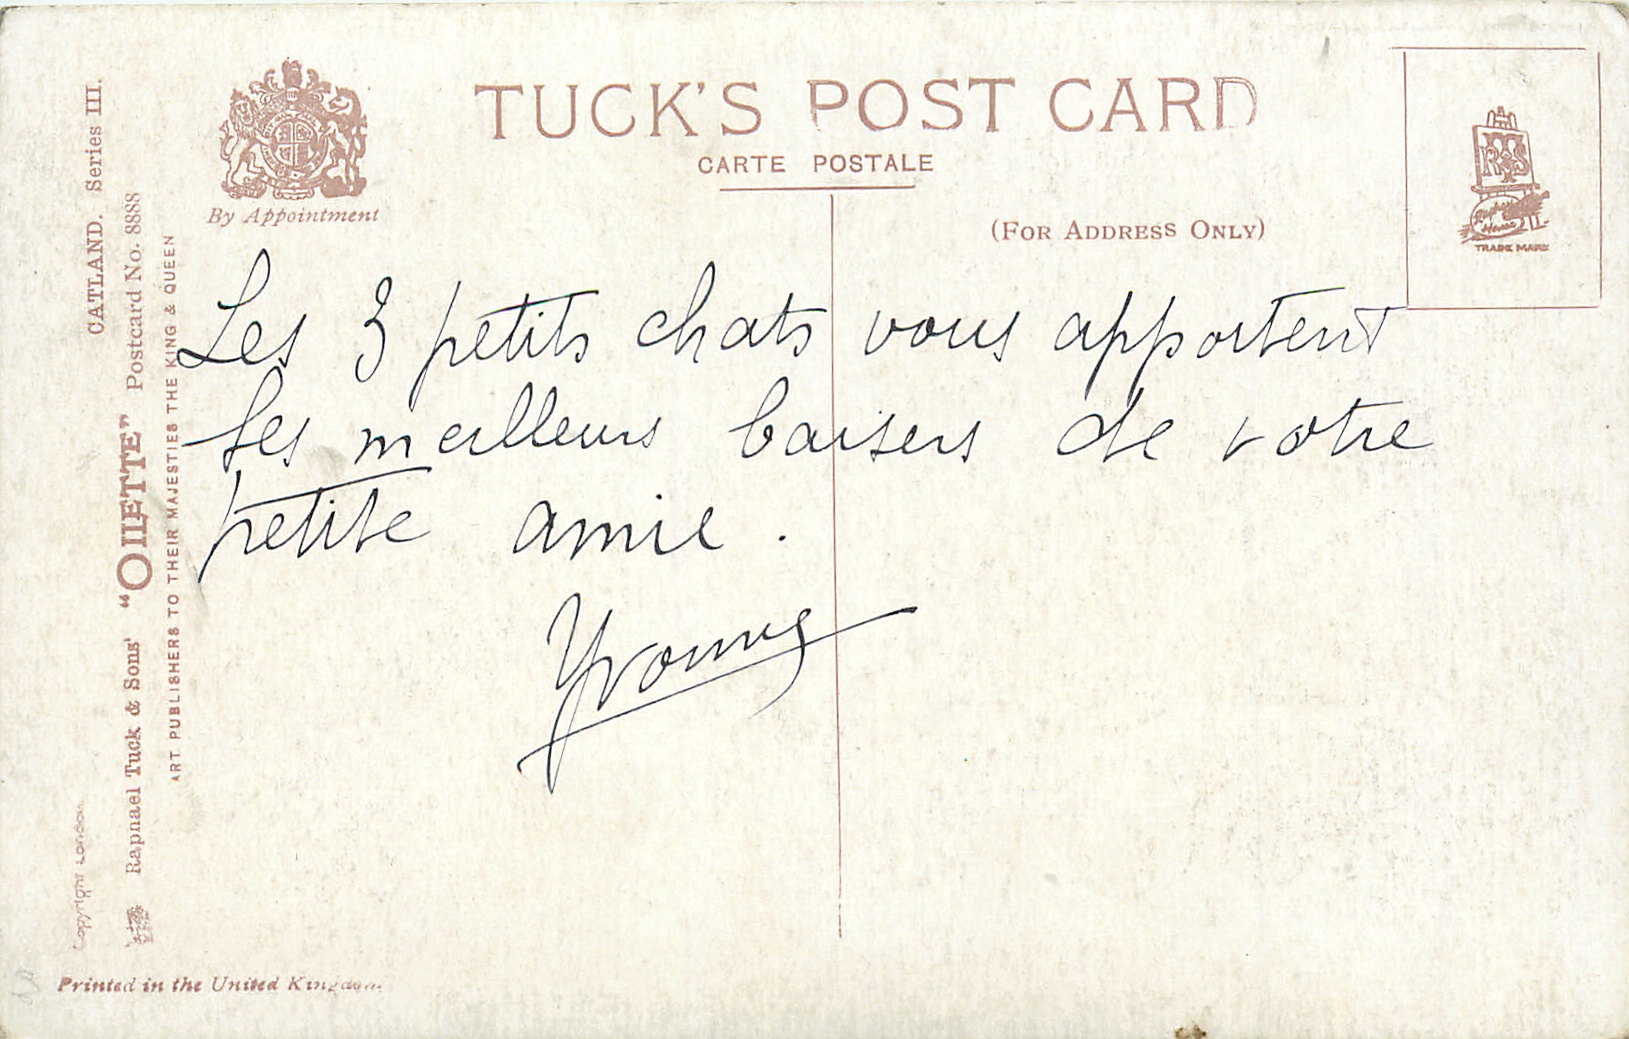 TUCK'S POST CARD
CARTE POSTALE
(FOR ADDRESS ONLY)
By Appointment
RTS
TRADE MARK
CATLAND. Series III.
Raphael Tuck & Sons' "OILETTE" Postcard No. 8888
ART PUBLISHERS TO THEIR MAJESTIES THE KING & QUEEN
Copyright London
Les 3 petits chats vous apportent
les meilleurs baisers de votre
petite amie.
Yvonne
Printed in the United Kingdom.